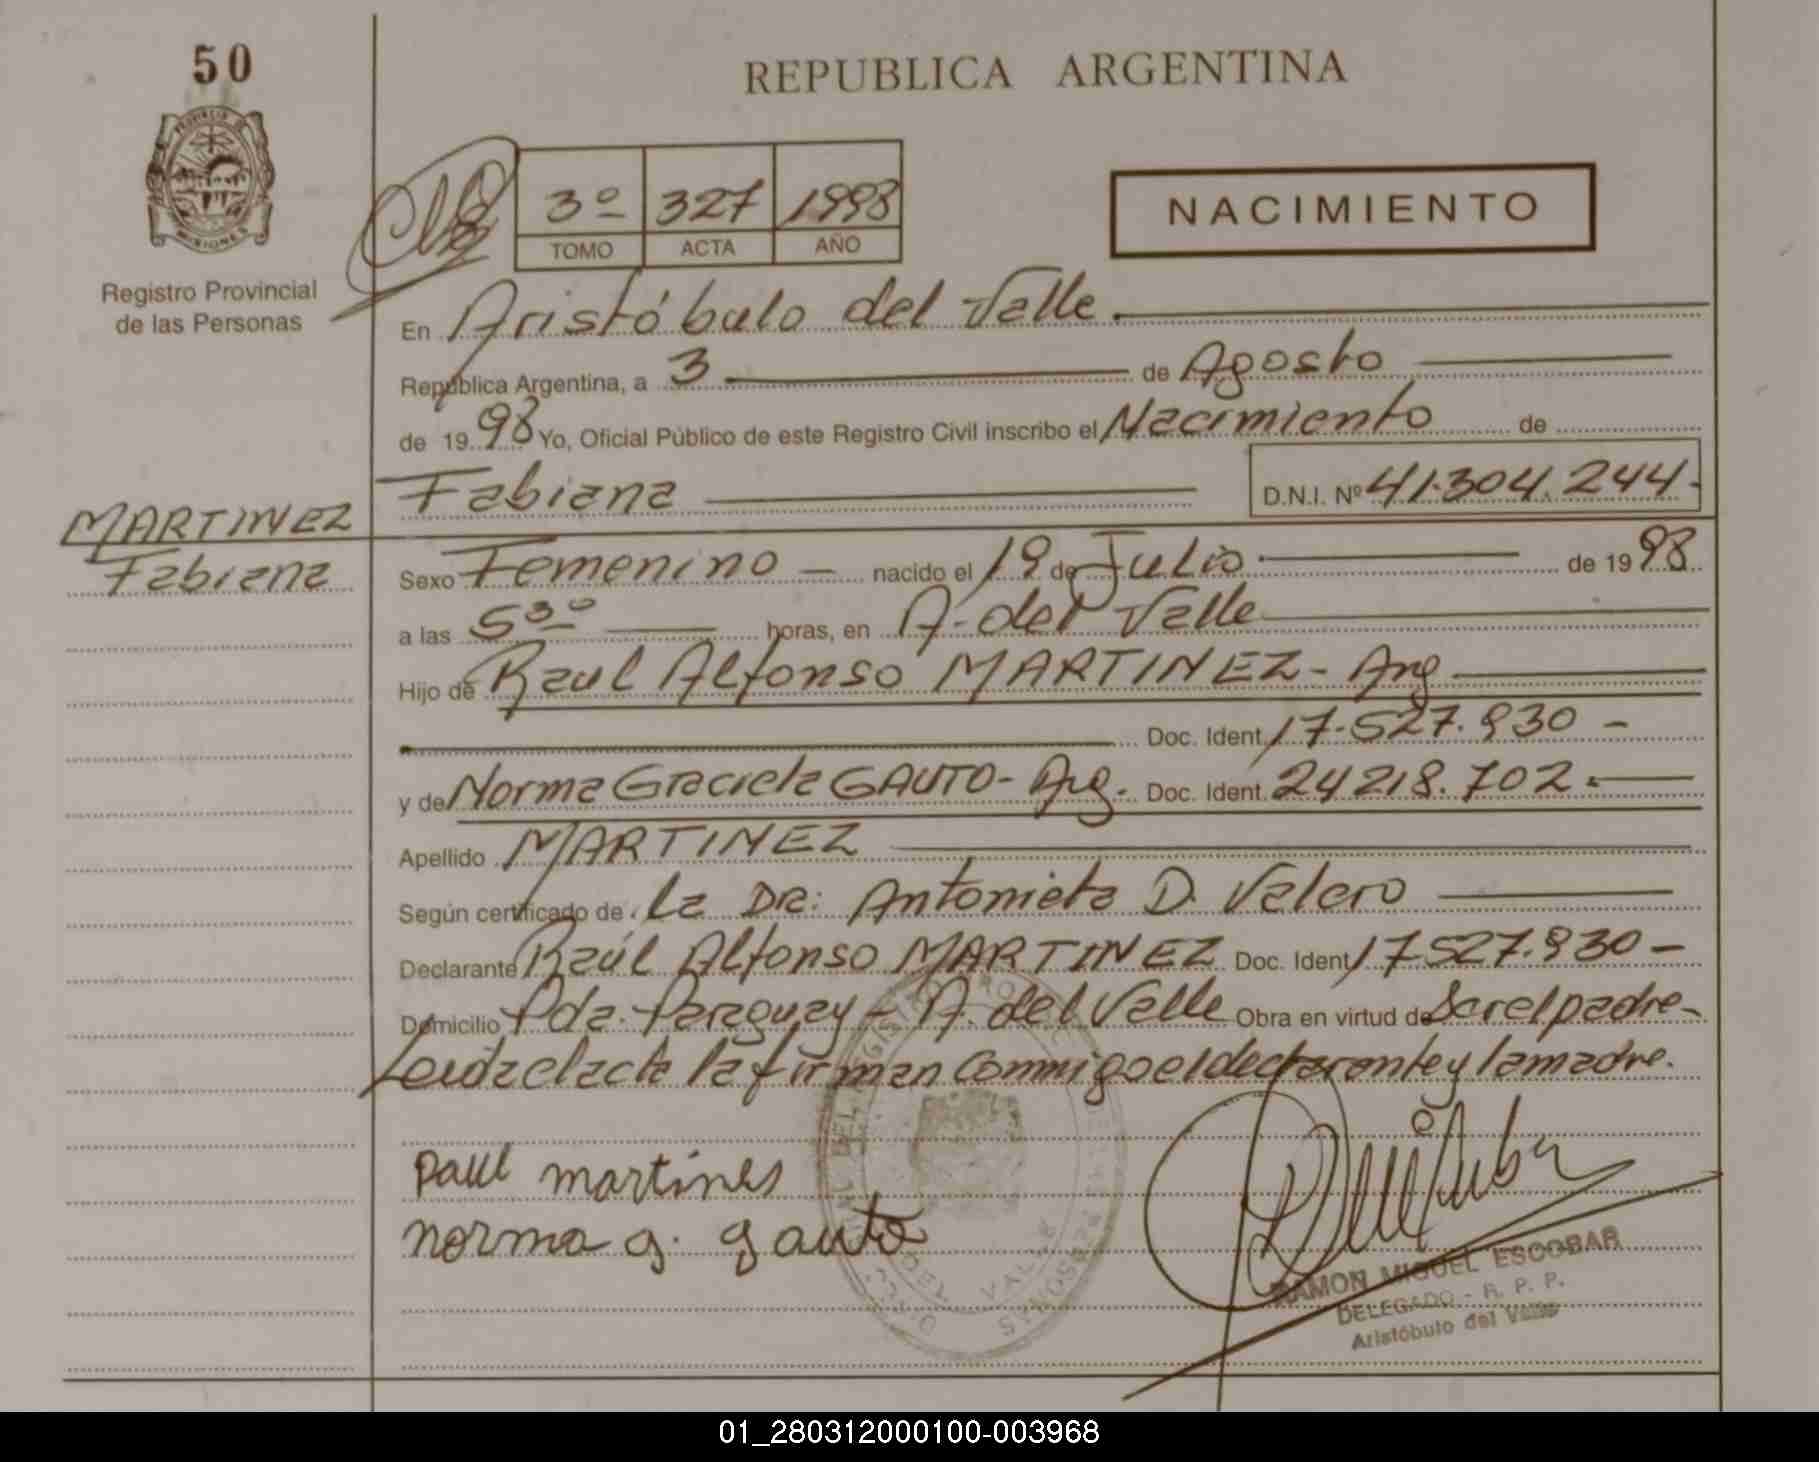 50
REPUBLICA ARGENTINA
PROVINCIA DE
MISIONES
Registro Provincial
de las Personas
3º 327 1998
TOMO ACTA AÑO
NACIMIENTO
En Aristóbulo del Valle.
República Argentina, a 3 de Agosto
de 1998 Yo, Oficial Público de este Registro Civil inscribo el Nacimiento de
Fabiana D.N.I. Nº 41.304.244.
MARTINEZ
Fabiana
Sexo Femenino nacido el 19 de Julio de 1998
a las 5 30 horas, en A. del Valle
Hijo de Raul Alfonso MARTINEZ - Arg
Doc. Ident. 17.527.930 -
y de Norma Graciela GAUTO - Arg. Doc. Ident. 24 218.702.
Apellido MARTINEZ
Según certificado de la DRa: Antonieta D. Valero
Declarante Raúl Alfonso MARTINEZ Doc. Ident 17.527.930 -
Domicilio Pda. Paraguay - A. del Valle Obra en virtud de Ser el padre -
Leida el acta la firman Conmigo el declarante y la madre.
Paul martines
norma g. gauto
RAMON MIGUEL ESCOBAR
DELEGADO - R. P. P.
Aristóbulo del Valle
01_280312000100-003968